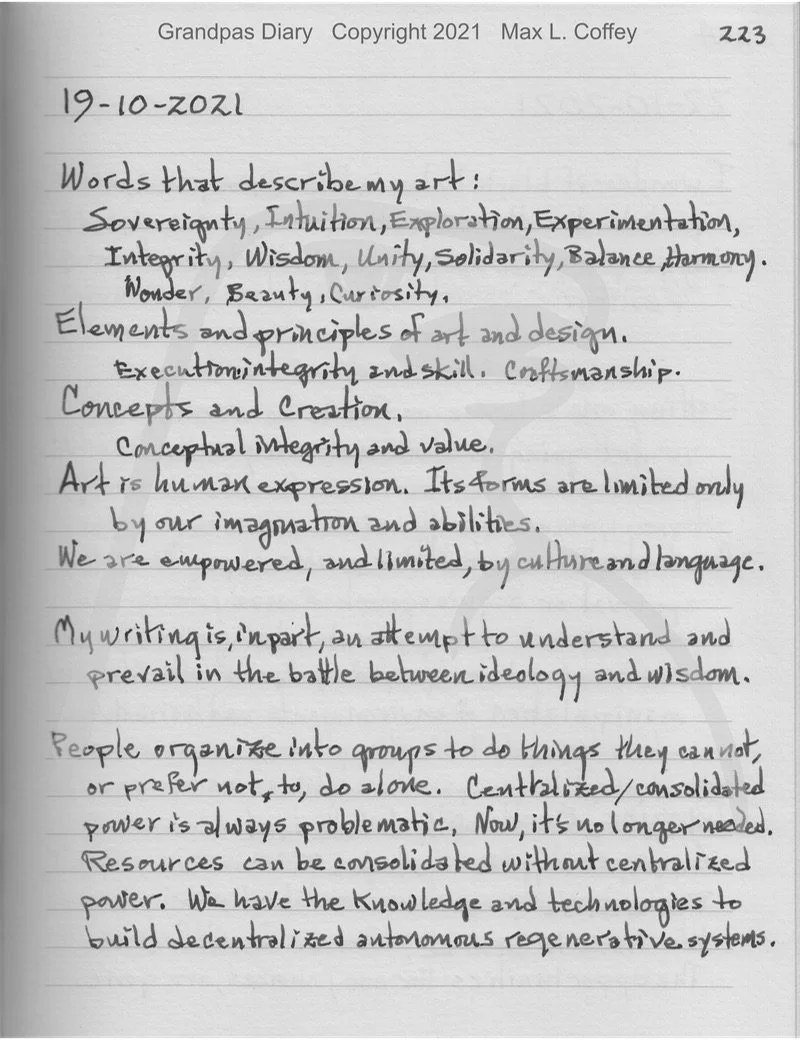 Grandpas Diary Copyright 2021 Max L. Coffey 223
19-10-2021
Words that describe my art:
Sovereignty, Intuition, Exploration, Experimentation,
Integrity, Wisdom, Unity, Solidarity, Balance, Harmony.
Wonder, Beauty, Curiosity.
Elements and principles of art and design.
Execution integrity and skill. Craftsmanship.
Concepts and Creation.
Conceptual integrity and value.
Art is human expression. Its forms are limited only
by our imagination and abilities.
We are empowered, and limited, by culture and language.
My writing is, in part, an attempt to understand and
prevail in the battle between ideology and wisdom.
People organize into groups to do things they cannot,
or prefer not, to, do alone. Centralized/consolidated
power is always problematic. Now, it's no longer needed.
Resources can be consolidated without centralized
power. We have the knowledge and technologies to
build decentralized autonomous regenerative systems.